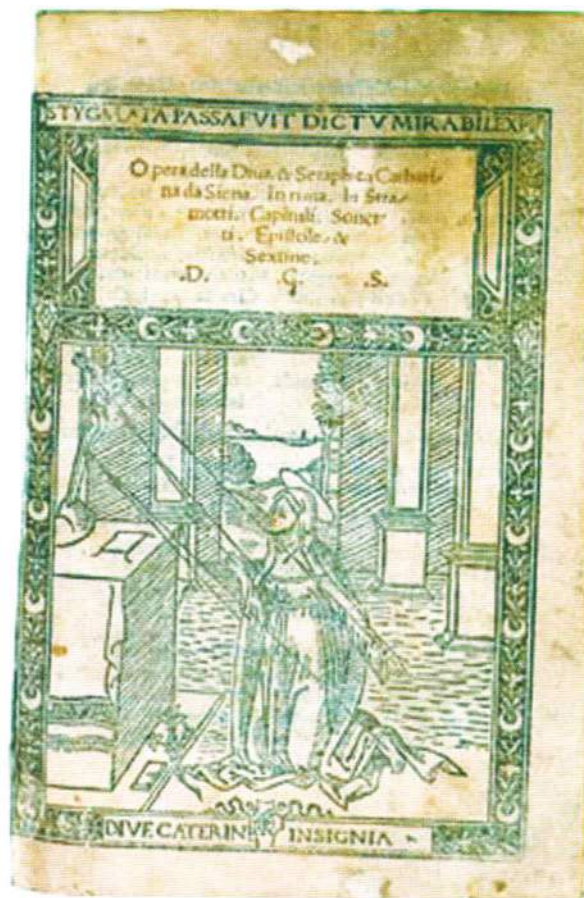 STYGMATA PASSA FVIT DICTV MIRABILE XP
Opera della Diua & Seraphica Catheri-
na da Siena. In rima. In stra-
motti. Capituli. Sonet-
ti. Epistole. &
Sextine.
.D. .G. .S.
DIVE CATERINE INSIGNIA